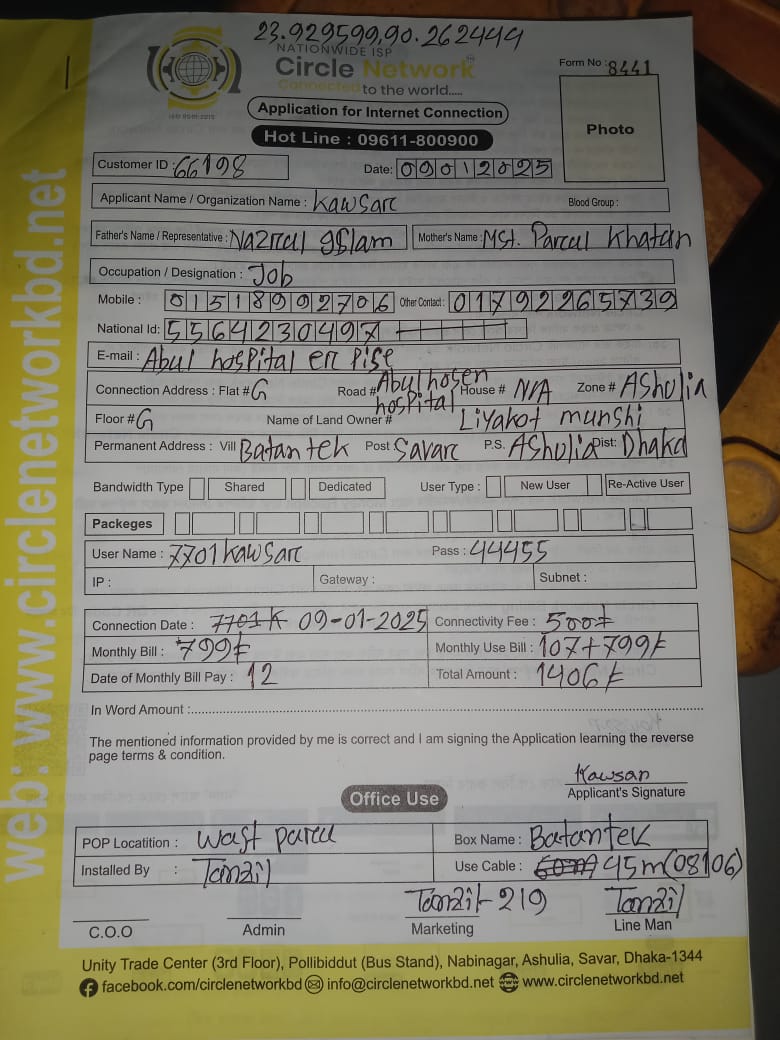 23.929599,90.262444
NATIONWIDE ISP
Circle Network
Connected to the world.....
ISO 9001:2015
Form No : 8441
Application for Internet Connection
Hot Line : 09611-800900
Photo
Customer ID : 66198
Date: 09012025
Applicant Name / Organization Name : Kawsarc Blood Group :
Father's Name / Representative : Nazrcul gslam Mother's Name : MSt. Parcul Khatun
Occupation / Designation : Job
Mobile : 01518992706 Other Contact : 01792265739
National Id: 5564230497
E-mail : Abul hospital er Pise
Connection Address : Flat # G Road # Abul hosen hospital House # N/A Zone # AShulia
Floor # G Name of Land Owner # Liyakot munshi
Permanent Address : Vill Batan tek Post Savarc P.S. AShulia Dist: Dhaka
Bandwidth Type Shared Dedicated User Type : New User Re-Active User
Packeges
User Name : 7701kawsarc Pass : 44455
IP : Gateway : Subnet :
Connection Date : 7701 K 09-01-2025 Connectivity Fee : 500৳
Monthly Bill : 799৳ Monthly Use Bill : 107+799৳
Date of Monthly Bill Pay : 12 Total Amount : 1406৳
In Word Amount :
The mentioned information provided by me is correct and I am signing the Application learning the reverse
page terms & condition.
Kawsar
Applicant's Signature
Office Use
POP Locatition : Wast parcu Box Name : Batantek
Installed By : Tanzil Use Cable : 45m(08106)
Tanzil-219 Tanzil
C.O.O Admin Marketing Line Man
Unity Trade Center (3rd Floor), Pollibiddut (Bus Stand), Nabinagar, Ashulia, Savar, Dhaka-1344
facebook.com/circlenetworkbd info@circlenetworkbd.net www.circlenetworkbd.net
web: www.circlenetworkbd.net